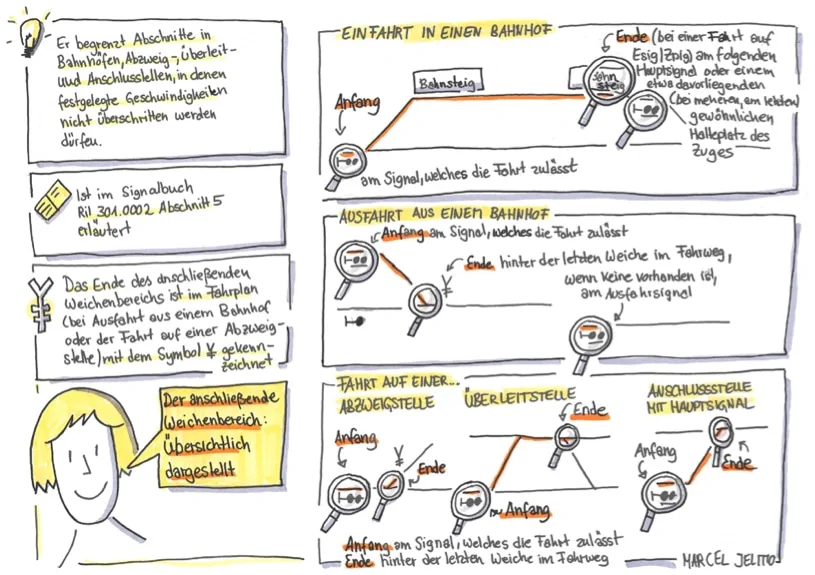 Er begrenzt Abschnitte in
Bahnhöfen, Abzweig-, Überleit-
und Anschlusstellen, in denen
festgelegte Geschwindigkeiten
nicht überschritten werden
dürfen.
Ist im Signalbuch
Ril 301.0002 Abschnitt 5
erläutert
Das Ende des anschließenden
Weichenbereichs ist im Fahrplan
(bei Ausfahrt aus einem Bahnhof
oder der Fahrt auf einer Abzweig-
stelle) mit dem Symbol ¥ gekenn-
zeichnet
Der anschließende
Weichenbereich:
Übersichtlich
dargestellt
EINFAHRT IN EINEN BAHNHOF
Bahnsteig
Anfang
am Signal, welches die Fahrt zulässt
Ende (bei einer Fahrt auf
Esig/Zsig) am folgenden
Hauptsignal oder einem
etwa davorliegenden
(bei mehreren, am letzten)
gewöhnlichen
Halteplatz des
Zuges
AUSFAHRT AUS EINEM BAHNHOF
Anfang am Signal, welches die Fahrt zulässt
¥ Ende hinter der letzten Weiche im Fahrweg,
wenn keine vorhanden ist,
am Ausfahrsignal
FAHRT AUF EINER...
ABZWEIGSTELLE
Anfang
¥
Ende
ÜBERLEITSTELLE
Ende
Anfang
ANSCHLUSSSTELLE
MIT HAUPTSIGNAL
Anfang
Ende
Anfang am Signal, welches die Fahrt zulässt
Ende hinter der letzten Weiche im Fahrweg
MARCEL JELITTO